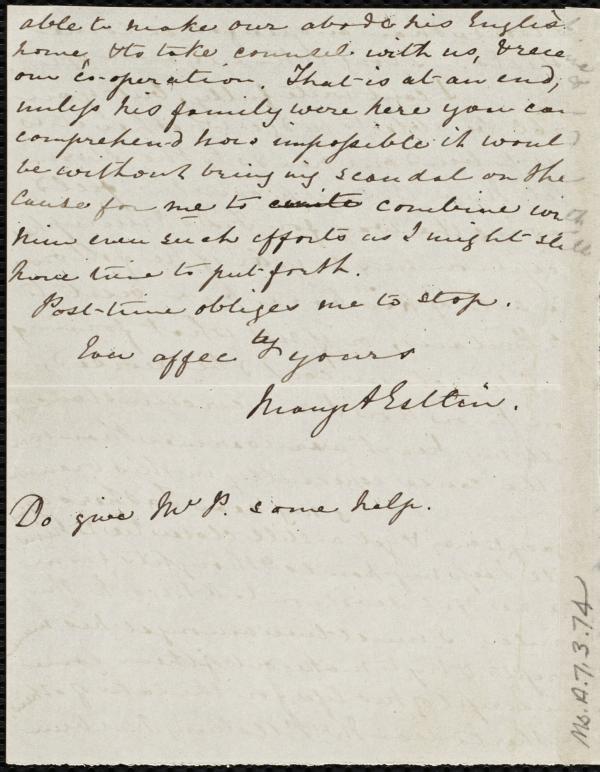 able to make our abode his Englis
home, & to take counsel with us, & rece
our co-operation. That is at an end,
unless his family were here you can
comprehend how impossible it woul
be without bringing scandal on the
cause for me to unite combine wi
him even such efforts as I might sti
have time to put forth.
Post-time obliges me to stop.
Ever affec tly yours
Mary A Estlin.
Do give Mr P. some help.
Ms. A.7.3.74